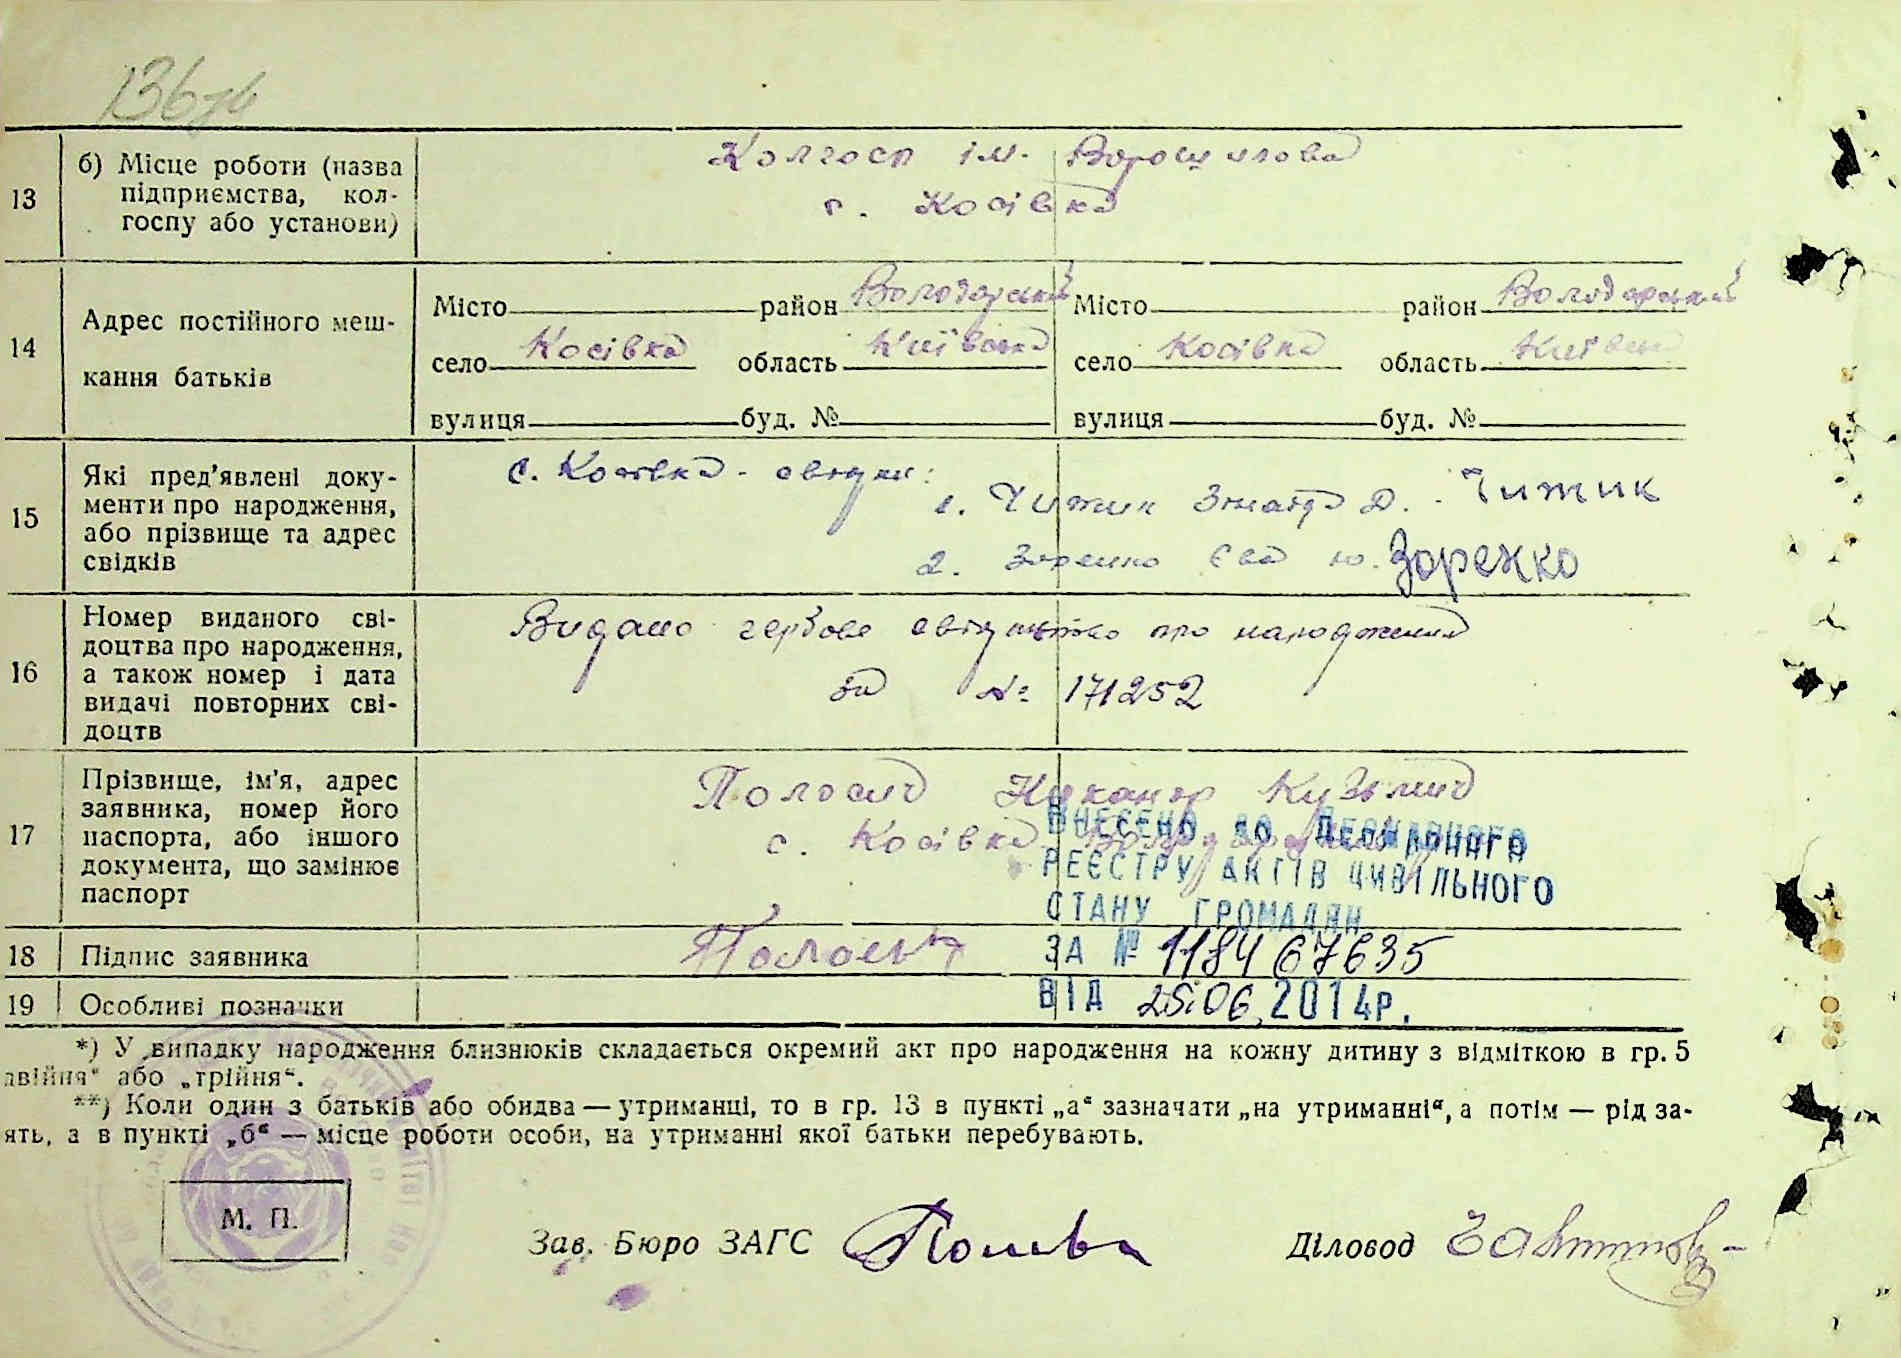 136
13
б) Місце роботи (назва
підприємства, кол-
госпу або установи)
Колгосп ім. Ворошилова
с. Косівка
14
Адрес постійного меш-
кання батьків
Місто район Володарський Місто район Володарський
село Косівка область Київська село Косівка область Київська
вулиця буд. № вулиця буд. №
15
Які пред'явлені доку-
менти про народження,
або прізвище та адрес
свідків
с. Косівка - свідки:
1. Чижик Зінаїда Д. Чижик
2. Зоренко Єва Ю. Зоренко
16
Номер виданого сві-
доцтва про народження,
а також номер і дата
видачі повторних сві-
доцтв
Видано гербове свідоцтво про народження
за № 171252
17
Прізвище, ім'я, адрес
заявника, номер його
паспорта, або іншого
документа, що замінює
паспорт
Никанор Кузьмич
с. Косівка
ВНЕСЕНО ДО ДЕРЖАВНОГО
РЕЄСТРУ АКТІВ ЦИВІЛЬНОГО
СТАНУ ГРОМАДЯН
ЗА № 1184 67635
ВІД 25.06.2014р.
18
Підпис заявника
19
Особливі позначки
*) У випадку народження близнюків складається окремий акт про народження на кожну дитину з відміткою в гр. 5
двійня" або „трійня“.
**) Коли один з батьків або обидва — утриманці, то в гр. 13 в пункті „а“ зазначати „на утриманні“, а потім — рід за-
ять, а в пункті „б“ — місце роботи особи, на утриманні якої батьки перебувають.
М. П.
Зав. Бюро ЗАГС
Діловод